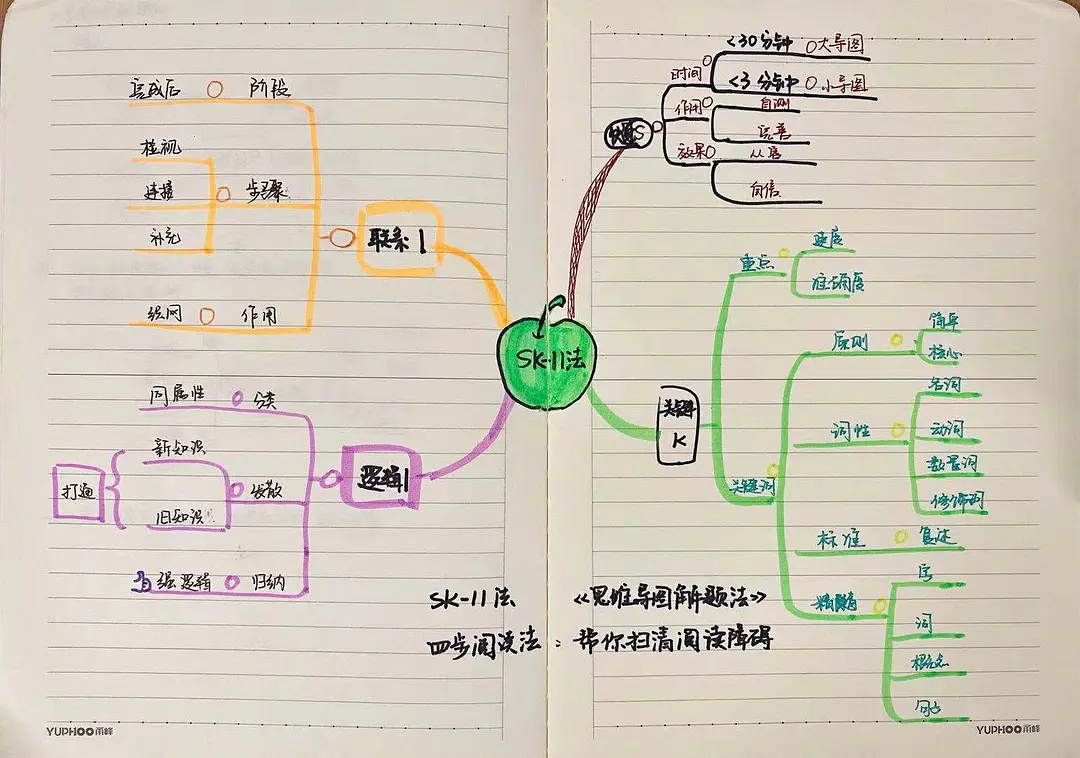 SK-11法
快速S
时间
<30分钟 大导图
<3分钟 小导图
作用
自测
完善
效果
自信
关键 K
重点
速度
准确度
关键词
原则
简单
核心
词性
名词
动词
数量词
修饰词
标准
复述
精确
字
词
概念
联系1
阶段
完成后
步骤
检视
连接
补充
作用
织网
逻辑1
分类
同属性
发散
新知识
旧知识
打通
归纳
强逻辑
SK-11法 《思维导图解题法》
四步阅读法:帮你扫清阅读障碍
YUPHOO雨峰
YUPHOO雨峰